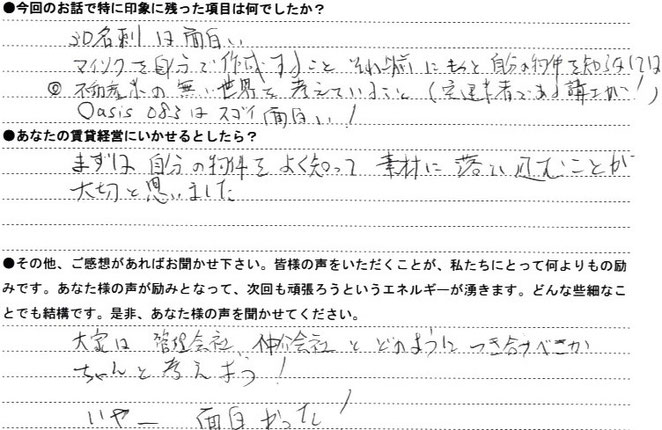 ●今回のお話で特に印象に残った項目は何でしたか？
3D名刺は面白い
マイソクを自分で作成すること それ以前にもっと自分の物件を知らなくては
◎不動産業の無い世界を考えていること(宅建業者である講士が！)
Oasis 083はスゴイ面白い！
●あなたの賃貸経営にいかせるとしたら？
まずは自分の物件をよく知って 素材に落し込むことが
大切と思いました
●その他、ご感想があればお聞かせ下さい。皆様の声をいただくことが、私たちにとって何よりもの励
みです。あなた様の声が励みとなって、次回も頑張ろうというエネルギーが湧きます。どんな些細なこ
とでも結構です。是非、あなた様の声を聞かせてください。
大家は 管理会社、仲介会社とどのようにつき合すべきか
ちゃんと考えよう！
いやー 面白かった！